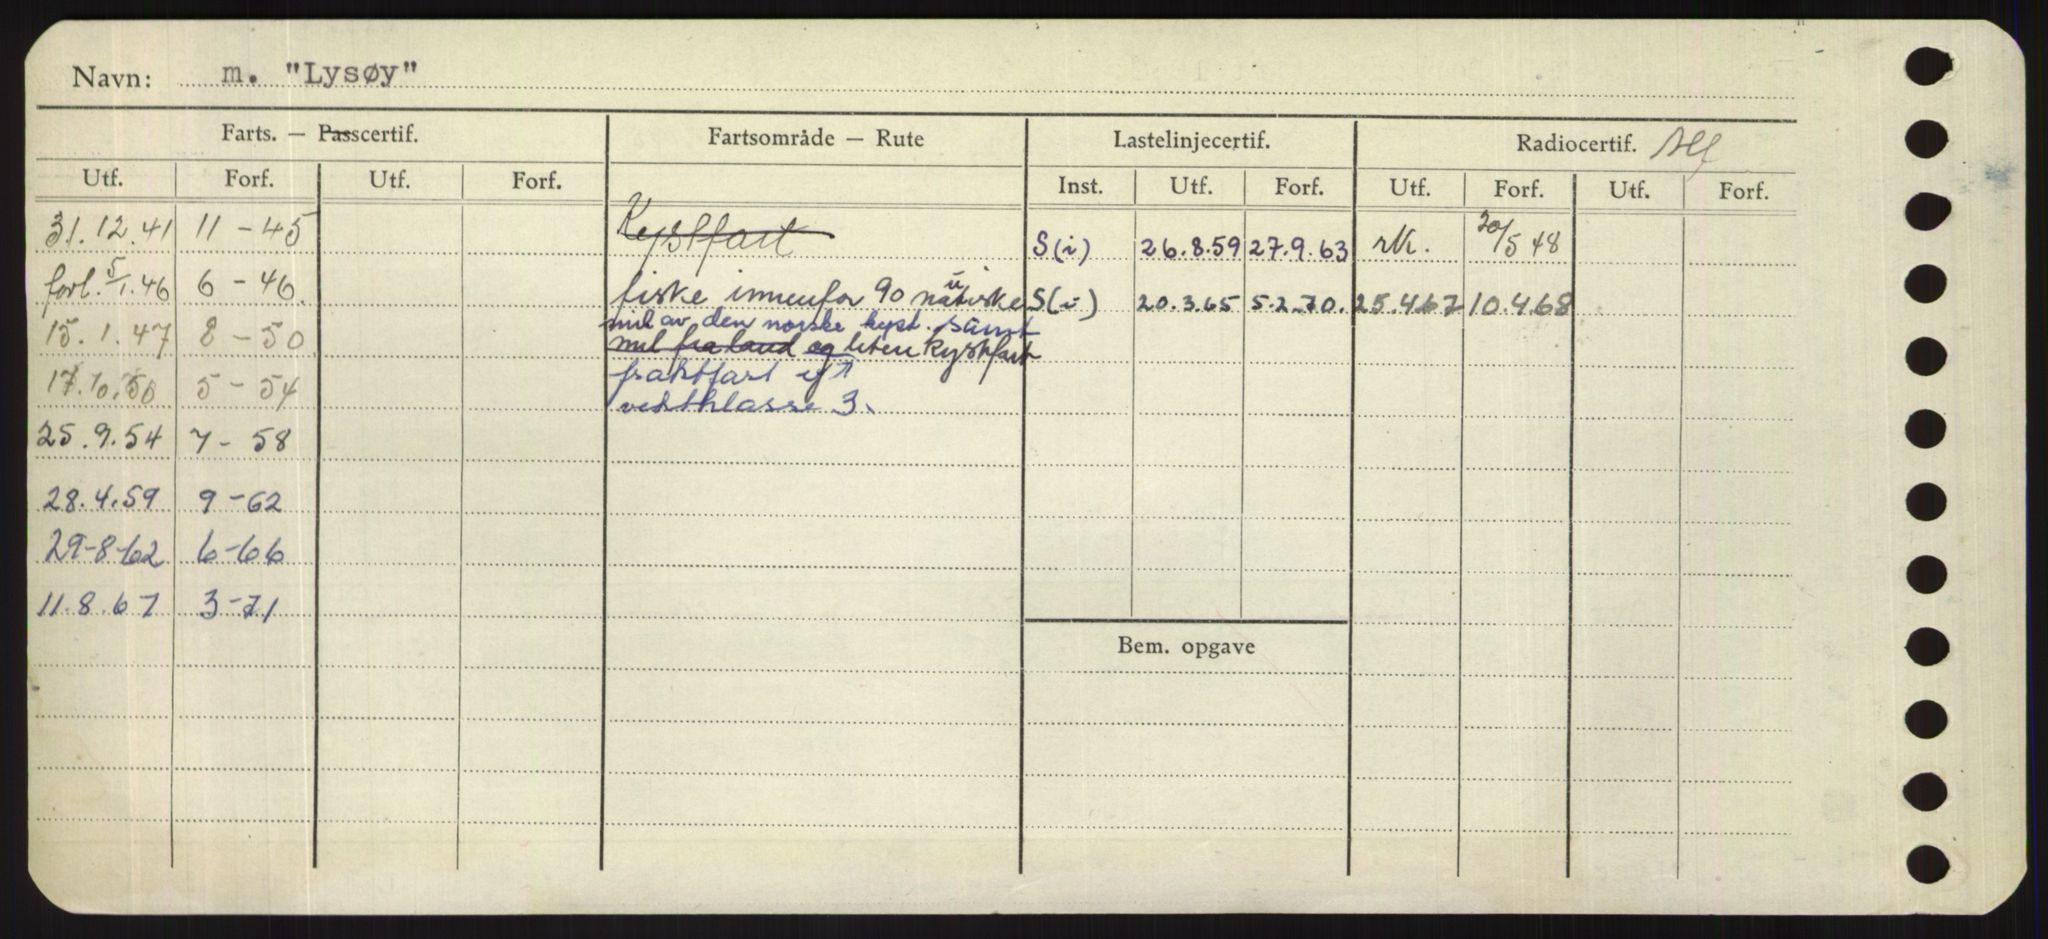 Navn: m. "Lysøy"
Farts. — Passcertif. Fartsområde — Rute Lastelinjecertif. Radiocertif.
Utf. Forf. Utf. Forf. Inst. Utf. Forf. Utf. Forf. Utf. Forf.
31.12.41 11-45 Kystfart S(i) 26.8.59 27.9.63 rk. 20/5 48
forl. 5/1.46 6-46 fiske innenfor 90 nautiske S(i) 20.3.65 5.2.70. 25.4.67 10.4.68
mil av den norske kyst. samt
15.1.47 8-50 mil fra land og liten kystfart
17.10.50 5-54 fraktfart
vektklasse 3.
25.9.54 7-58
28.4.59 9-62
29-8-62 6-66
11.8.67 3-71
Bem. opgave